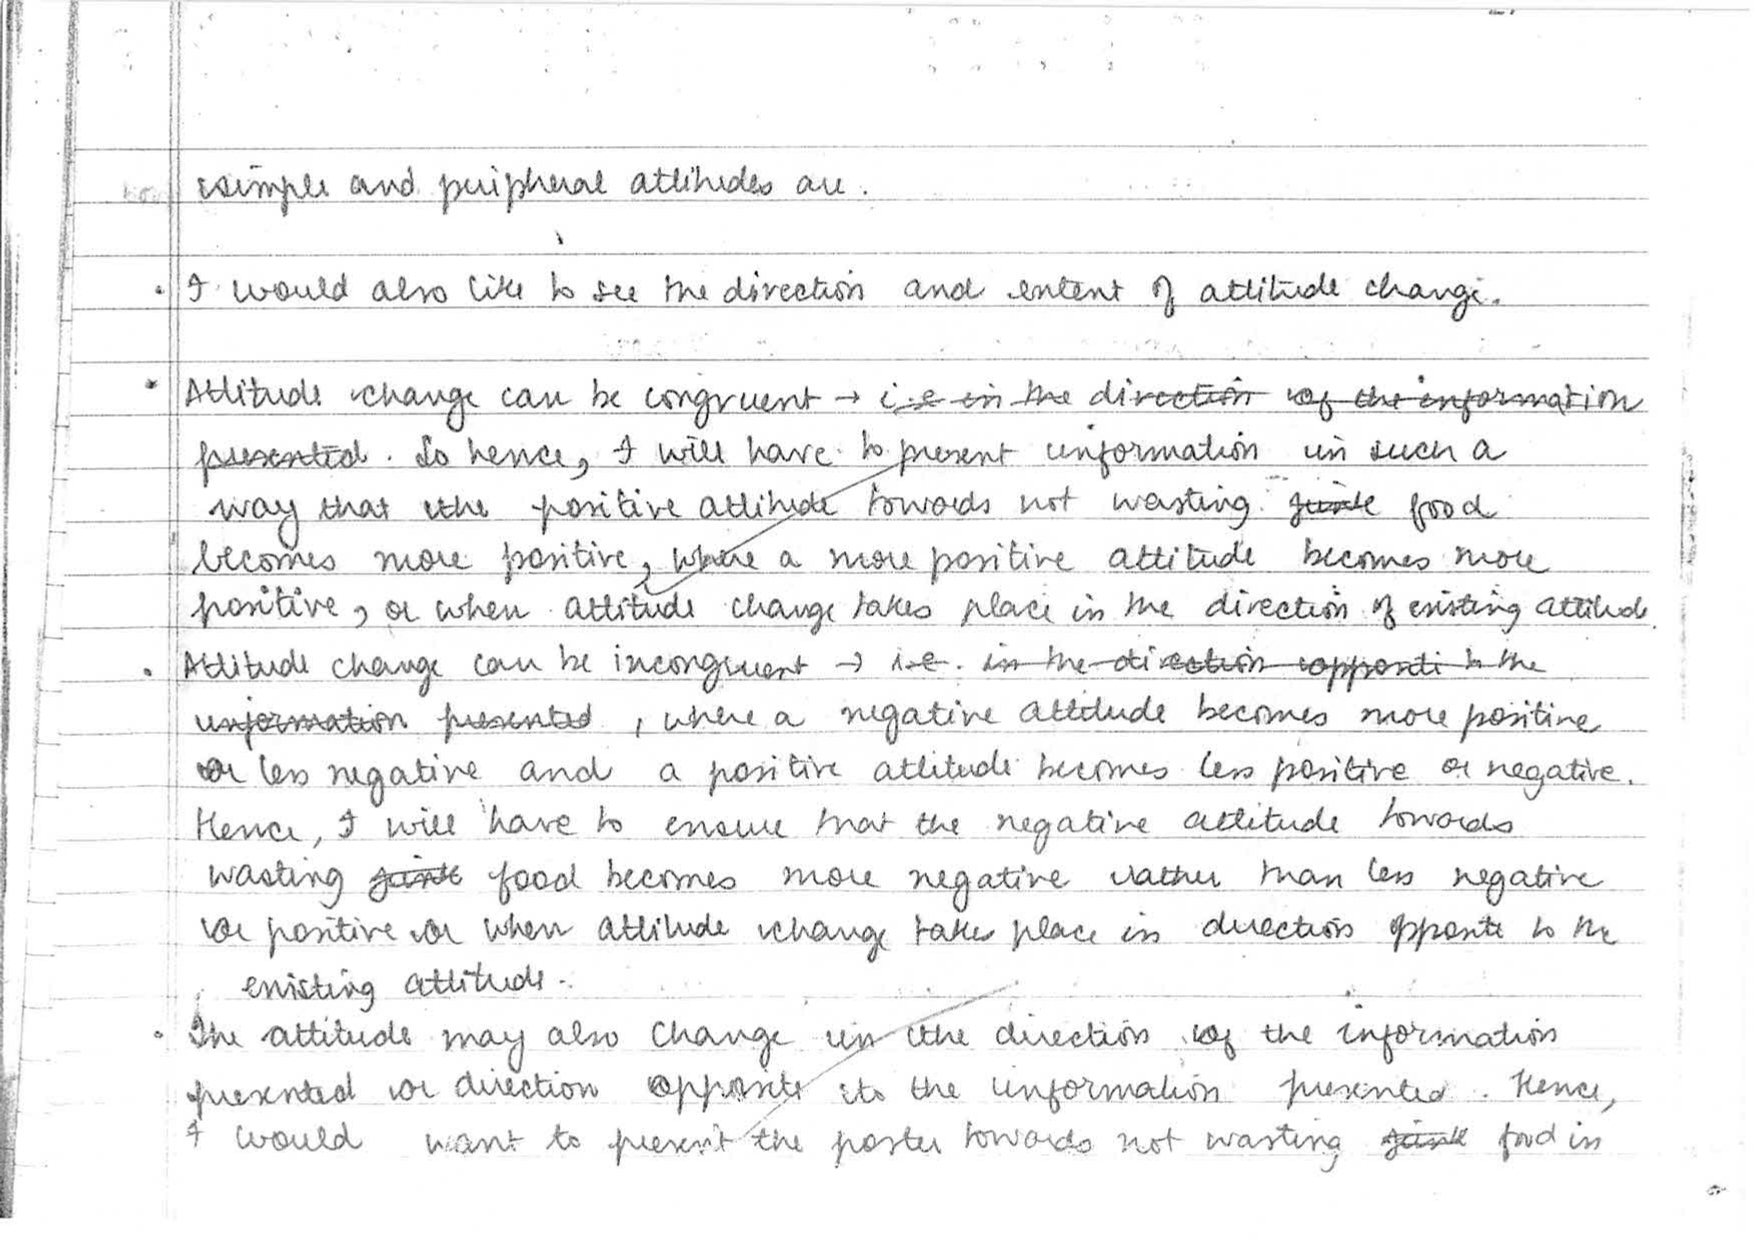 simple and peripheral attitudes are.
• I would also like to see the direction and extent of attitude change.
* Attitude change can be congruent → i.e in the direction of the information
presented. So hence, I will have to present information in such a
way that the positive attitude towards not wasting junk food
becomes more positive, where a more positive attitude becomes more
positive, or when attitude change takes place in the direction of existing attitude.
• Attitude change can be incongruent → i.e. in the direction opposite to the
information presented, where a negative attitude becomes more positive
or less negative and a positive attitude becomes less positive or negative.
Hence, I will have to ensure that the negative attitude towards
wasting junk food becomes more negative rather than less negative
or positive or when attitude change takes place in direction opposite to the
existing attitude.
• The attitude may also change in the direction of the information
presented or direction opposite to the information presented. Hence,
I would want to present the poster towards not wasting junk food in